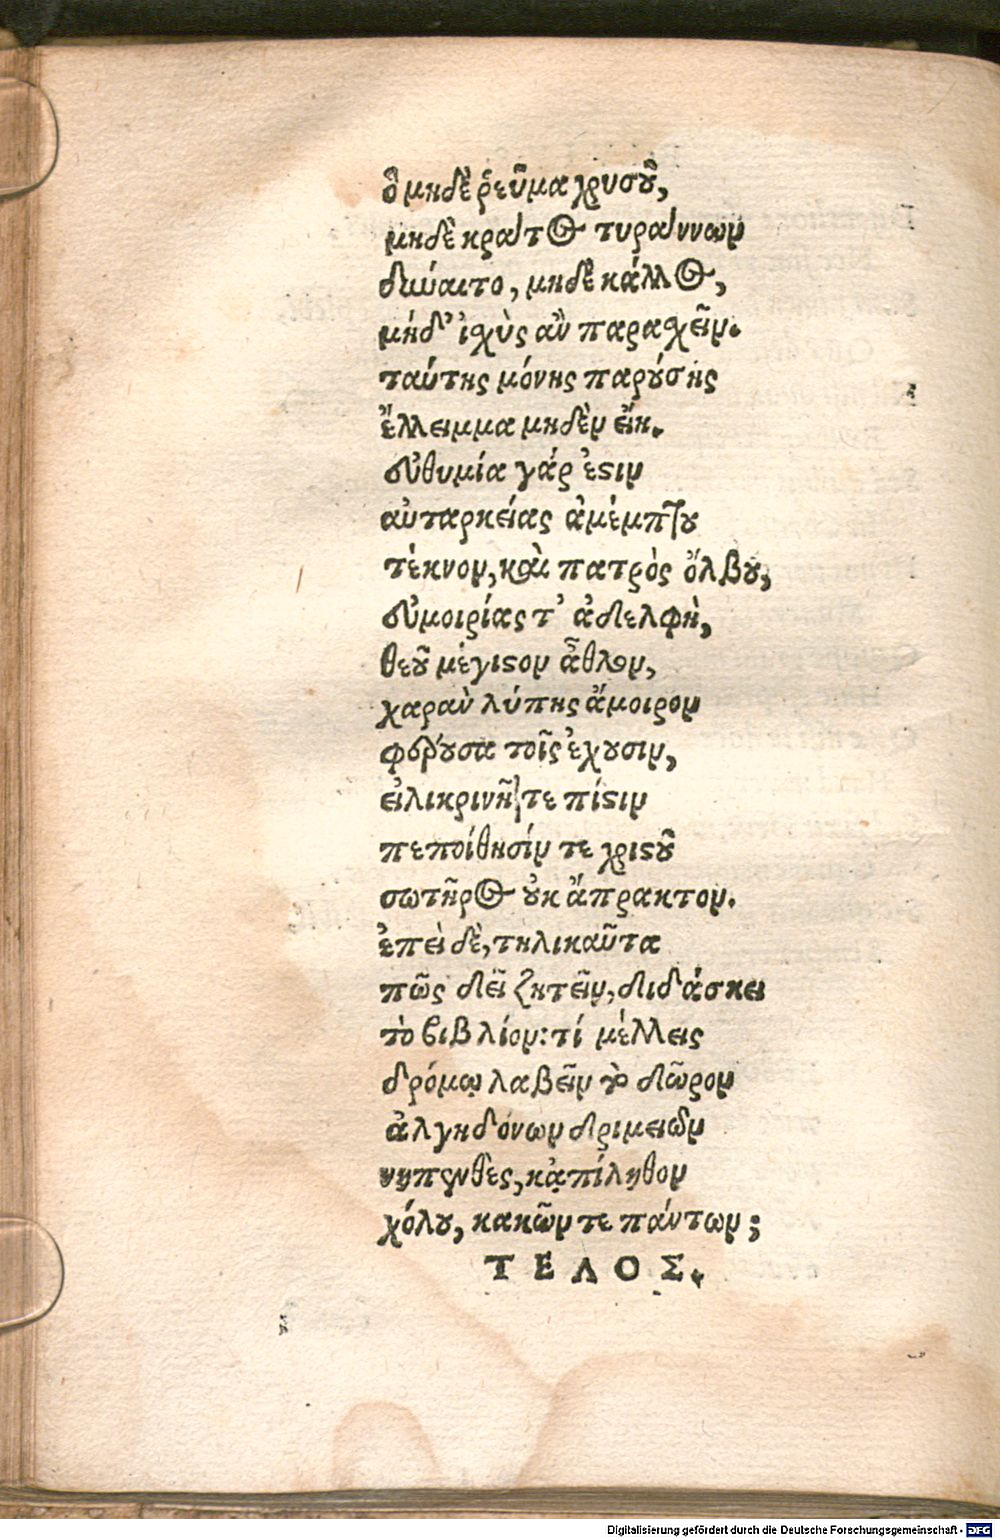 ὃ μηδὲ ῥεῦμα χρυσοῦ,
μηδὲ κράτος τυράννων
δύναιτο, μηδὲ κάλλος,
μήδ' ἰσχὺς ἂν παρασχεῖν.
ταύτης μόνης παρούσης
ἔλλειμμα μηδὲν εἴη.
εὐθυμία γάρ ἐστιν
αὐταρκείας ἀμέμπτου
τέκνον, καὶ πατρὸς ὄλβου,
εὐμοιρίας τ' ἀδελφὴ,
θεοῦ μέγιστον ἆθλον,
χαρὰν λύπης ἄμοιρον
φέρουσα τοῖς ἔχουσιν,
εἰλικρινῆ τε πίστιν
πεποίθησίν τε χριστοῦ
σωτῆρος οὐκ ἄπρακτον.
ἐπεὶ δὲ, τηλικαῦτα
πῶς δεῖ ζητεῖν, διδάσκει
τὸ βιβλίον: τί μέλλεις
δρόμῳ λαβεῖν τὸ δῶρον
ἀλγηδόνων δριμειῶν
νηπενθὲς, κἀπίληθον
χόλου, κακῶν τε πάντων;
ΤΕΛΟΣ.
Digitalisierung gefördert durch die Deutsche Forschungsgemeinschaft - DFG